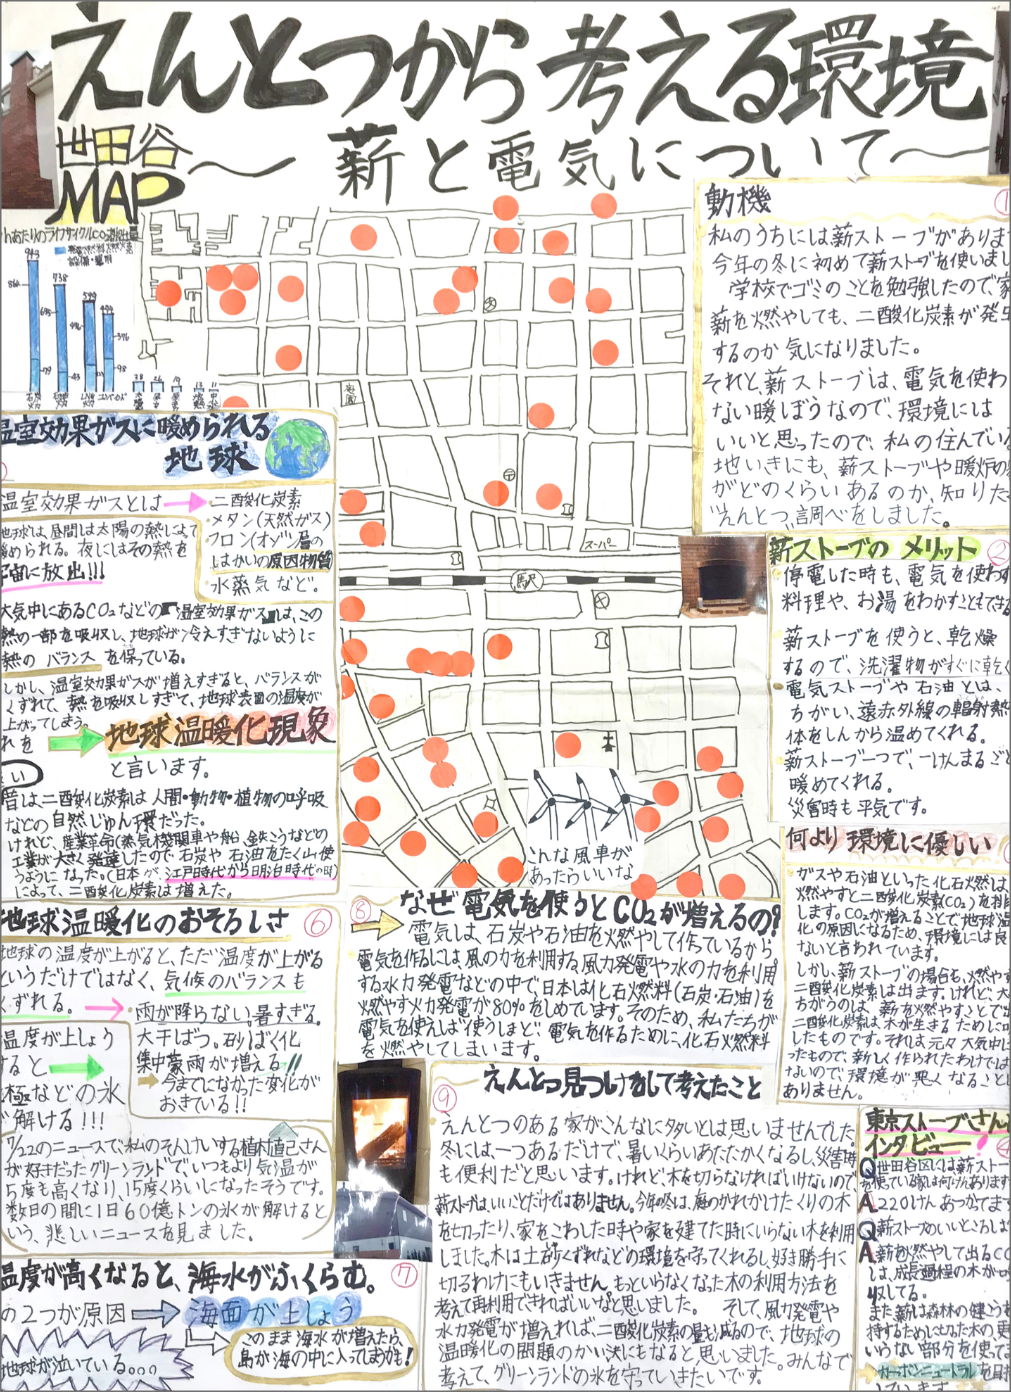 えんとつから考える環境
〜薪と電気について〜
世田谷
MAP
動機
私のうちには薪ストーブがありま
今年の冬に初めて薪ストーブを使いまし
学校でゴミのことを勉強したので家
薪を燃やしても、二酸化炭素が発生
するのか気になりました。
それと薪ストーブは、電気を使わ
ない暖ぼうなので、環境には
いいと思ったので、私の住んでい
地いきにも、薪ストーブや暖炉の
がどのくらいあるのか、知りた
"えんとつ"調べをしました。
薪ストーブのメリット
停電した時も、電気を使わず
料理や、お湯をわかすこともできる
薪ストーブを使うと、乾燥
するので、洗濯物がすぐに乾く
電気ストーブや石油とは、
ちがい、遠赤外線の輻射熱
体をしんから温めてくれる。
薪ストーブ一つで、一けんまるごと
暖めてくれる。
災害時も平気です。
何より環境に優しい
ガスや石油といった化石燃料は
燃やすと二酸化炭素(CO₂)を排
します。CO₂が増えることで地球温
化の原因になるため、環境には良
ないと言われています。
しかし、薪ストーブの場合も、燃やす
二酸化炭素は出ます。けれど、大
ちがうのは、薪を燃やすことで出
二酸化炭素は、木が生きるために吸
したものです。それは元々大気中に
ったもので、新しく作られたわけでは
ないので、環境が悪くなることは
ありません。
東京ストーブさんに
インタビュー!
Q世田谷区には薪ストー
使っている家は何けんありますか
A220けんあつかってます
Q薪ストーブのいいところは
A薪を燃やして出るCO
は、成長過程の木が吸
収してる。
また薪は森林の健こうを
持するために切った木の更
いらない部分を使ってま
カーボンニュートラルを目指
温室効果ガスに暖められる
地球
温室効果ガスとは
・二酸化炭素
・メタン(天然ガス)
・フロン(オゾン層の
はかいの原因物質
・水蒸気など。
地球は、昼間は太陽の熱によって
暖められる。夜にはその熱を
宇宙に放出!!!
大気中にあるCO₂などの「温室効果ガス」は、この
熱の一部を吸収し、地球が冷えすぎないように
熱のバランスを保っている。
しかし、温室効果ガスが増えすぎると、バランスが
くずれて、熱を吸収しすぎて、地球表面の温度が
上がってしまう。
れを
地球温暖化現象
と言います。
昔は二酸化炭素は人間・動物・植物の呼吸
などの自然じゅん環だった。
けれど、産業革命(蒸気機関車や船、鉄こうなどの
工業が大きく発達したので、石炭や石油をたくさん使
うようになった。(日本が、江戸時代から明治時代の頃)
によって、二酸化炭素は増えた。
地球温暖化のおそろしさ
⑥
地球の温度が上がると、ただ温度が上がる
というだけではなく、気候のバランスも
くずれる。
・雨が降らない。暑すぎる。
大干ばつ。砂ばく化
集中豪雨が増える!!
今までになかった変化が
おきている!!
温度が上しょう
すると
極などの氷
解ける!!!
7/22のニュースで、私のそんけいする植村直己さん
が好きだったグリーンランドで、いつもより気温が
5度も高くなり、15度くらいになったそうです。
数日の間に1日60億トンの氷が解けると
いう、悲しいニュースを見ました。
温度が高くなると、海水がふくらむ。
⑦
の2つが原因
海面が上しょう
このまま海水が増えたら、
島が海の中に入ってしまうかも!
地球が泣いている。。。
スーパー
駅
こんな風車が
あったらいいな
⑧
なぜ電気を使うとCO₂が増えるの?
電気は、石炭や石油を燃やして作っているから。
電気を作るには風の力を利用する風力発電や水の力を利用
する水力発電などの中で、日本は化石燃料(石炭・石油)を
燃やす火力発電が80%をしめています。そのため、私たちが
電気を使えば使うほど電気を作るために、化石燃料
を燃やしてしまいます。
⑨
えんとつ見つけをして考えたこと
えんとつのある家がこんなに多いとは思いませんでした。
冬には、一つあるだけで、暑いくらいあたたかくなるし、災害時
も便利だと思います。けれど、木を切らなければいけないので
薪ストーブは、いいことだけではありません。今年の冬は、庭のかれかけたくりの木
を切ったり、家をこわした時や家を建てた時にいらない木を利用
しました。木は土砂くずれなどの環境を守ってくれるし、好き勝手に
切るわけにもいきません。もといらなくなった木の利用方法を
考えて再利用できればいいなと思いました。 そして、風力発電や
水力発電が増えれば、二酸化炭素の量も減るので、地球の
温暖化の問題のかい決にもなると思いました。みんなで
考えて、グリーンランドの氷を守っていきたいです。